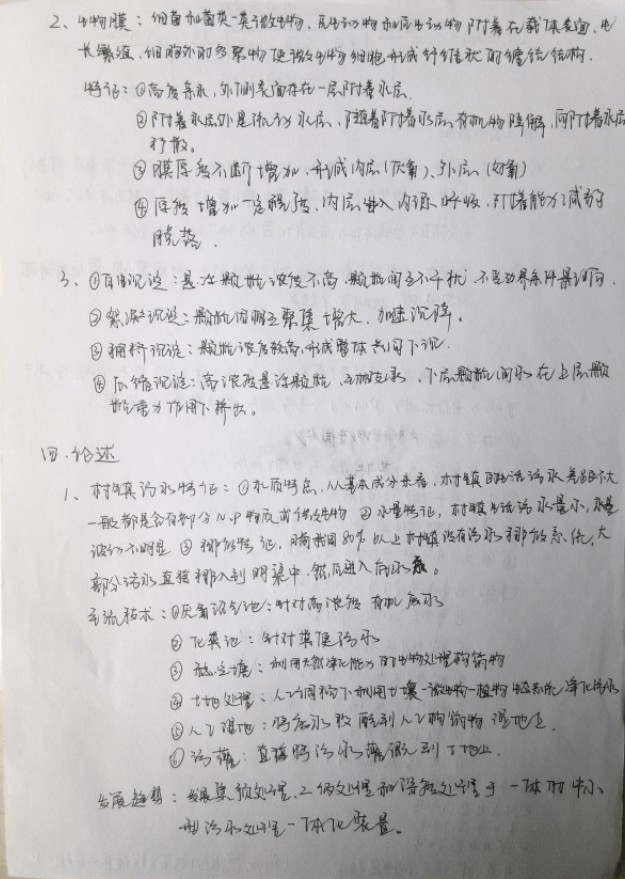 2、生物膜：细菌和菌类一类微生物、原生动物和后生动物附着在载体表面，生
长繁殖，细胞外的多聚物使微生物细胞形成纤维状的缠结结构。
特征：①高度亲水，外侧表面存在一层附着水层。
②附着水层外是流动水层，随着附着水层有机物降解，向附着水层
移散。
③膜厚度不断增加，形成内层(厌氧)、外层(好氧)
④厚度增加一定程度，内层进入内源呼吸，附着能力减弱
脱落。
3、①自由沉淀：悬浮颗粒浓度不高，颗粒间互不干扰，不受边界条件影响。
②絮凝沉淀：颗粒间相互聚集增大，加速沉降。
③拥挤沉淀：颗粒浓度较高，形成整体共同下沉。
④压缩沉淀：高浓度悬浮颗粒，互相支承，下层颗粒间水在上层颗
粒重力作用下挤出。
四、论述
1、村镇污水特征：①水质特点，从基本成分来看，村镇生活污水差距不大
一般都是含有部分N、P物质或微生物 ②水量特征，村镇生活污水量小，水量
波动不明显 ③排放特征，我国80%以上村镇没有污水排放系统，大
部分污水直接排入到明渠中，然后进入后水系。
主流技术：①厌氧沼气池：针对高浓度有机废水
②化粪池：针对粪便污水
③稳定塘：利用天然净化能力的生物处理构筑物
④土地处理：人工调控下利用土壤-微生物-植物生态系统净化污水
⑤人工湿地：将废水投配到人工构筑物湿地上
⑥污灌：直接将污水灌溉到土地上。
发展趋势：发展集预处理、二级处理和深度处理于一体的中小
型污水处理一体化装置。